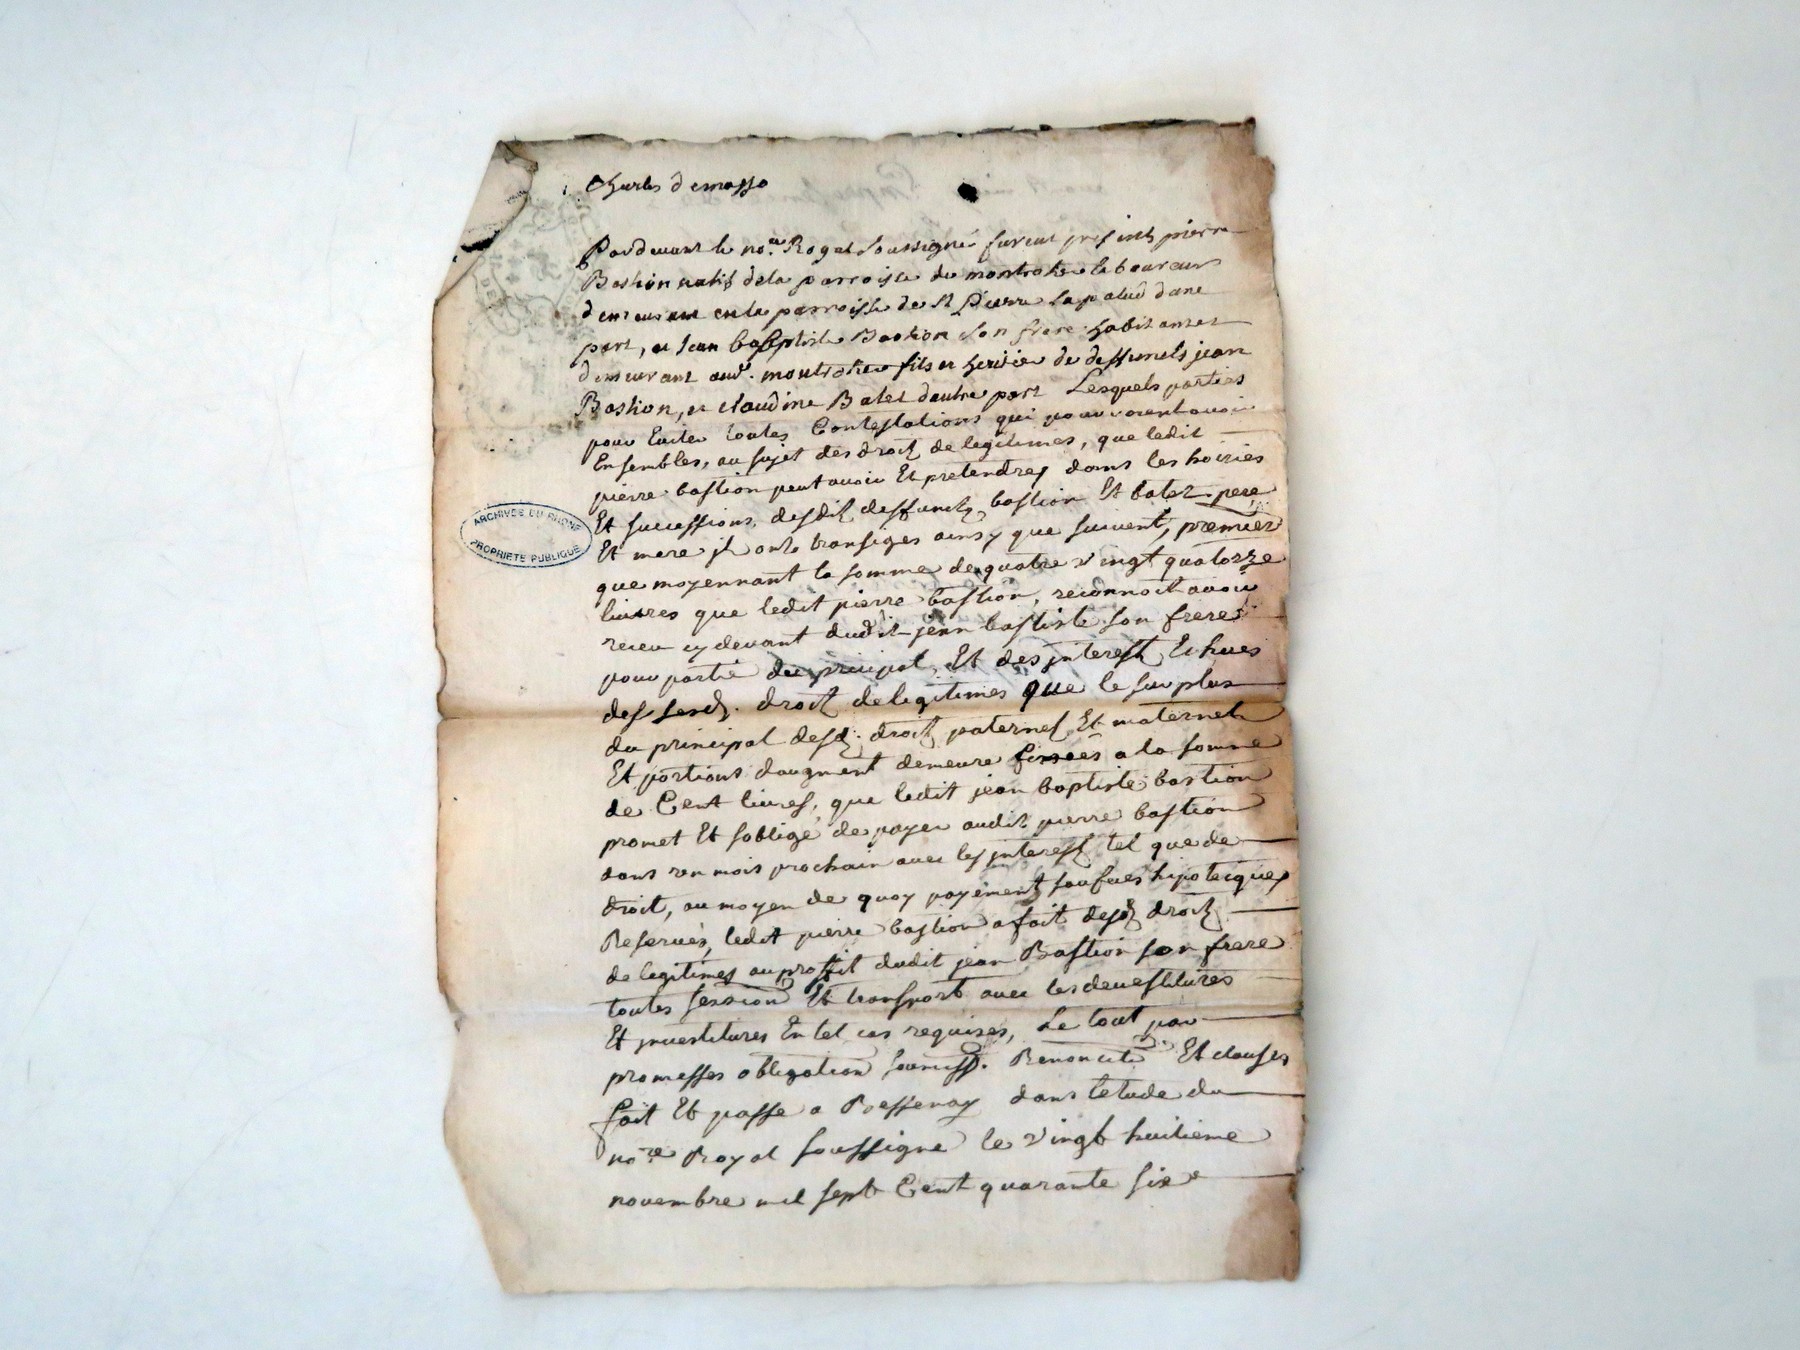 Charles demasso
Pardevant le no.re Royal soussigné furent presents pierre
Bastion natif de la parroisse de montrotier laboureur
demeurant en la parroisse de St Pierre la palud dune
part, et Jean baptiste Bastion son frere habitant et
demeurant aud. montrotier fils et heritier de deffunts jean
Bastion, et claudine Batet dautre part Lesquels parties
pour Eviter toutes Contestations qui pourroient avoir
Ensembles, au sujet des droits de legitimes, que ledit
pierre bastion peut avoir Et pretendres dans les hoiries
Et successions, desdits deffuncts bastion Et batet pere
Et mere jls onts transiges ainsy que suivent, premier
que moyennant la somme de quatre vingt quatorze
livres que ledit pierre bastion, reconnoit avoir
receu cy devant dudit jean baptiste son frere
pour partie du principal, Et des jnterests Echues
desdits. droits de legitimes que le surplus
du principal desd. droits paternels Et maternels
Et portions daugment demeure fixees a la somme
de Cent livres, que ledit jean baptiste bastion
promet Et soblige de payer audit pierre bastion
dans un mois prochain avec les jnterests tel que de
droit, au moyen de quoy payement sauf ses hipotecques
Reservés, ledit pierre bastion a fait desd. droits
de legitimes au proffit dudit jean Bastion son frere
toutes session Et transport avec les devestitures
Et jnvestitures En tel cas requises, Le tout par
promesses obligation soumiss. Renonciti Et clauses
fait Et passe a Bessenay dans letude du
no.re Royal soussigne le vingt huitieme
novembre mil sept Cent quarante six
ARCHIVES DU RHONE
PROPRIETE PUBLIQUE